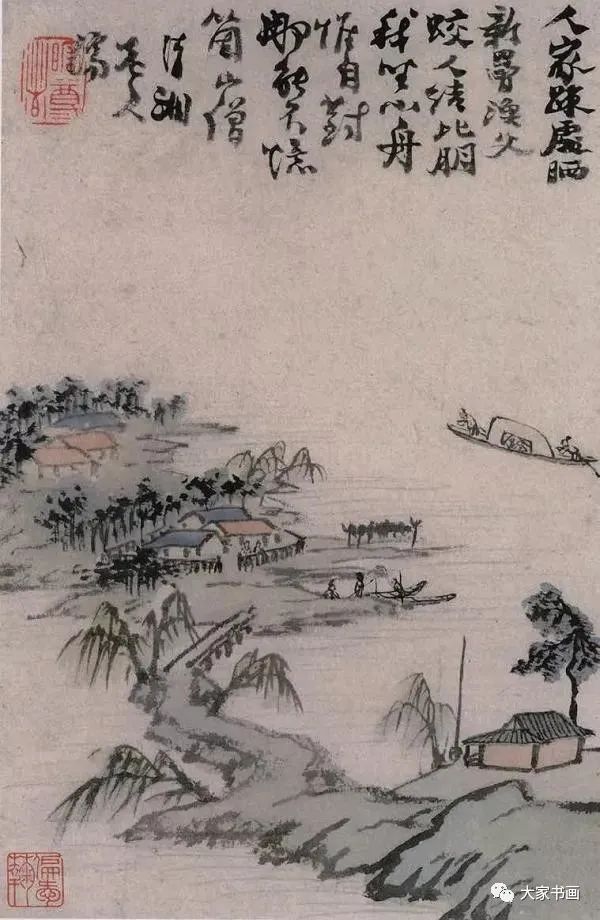 人家疎處晒
新罾漁父
蛟人結比朋
我坐小舟
惟自對
那能不憶
箇山僧
清湘
老人
濟
大家书画